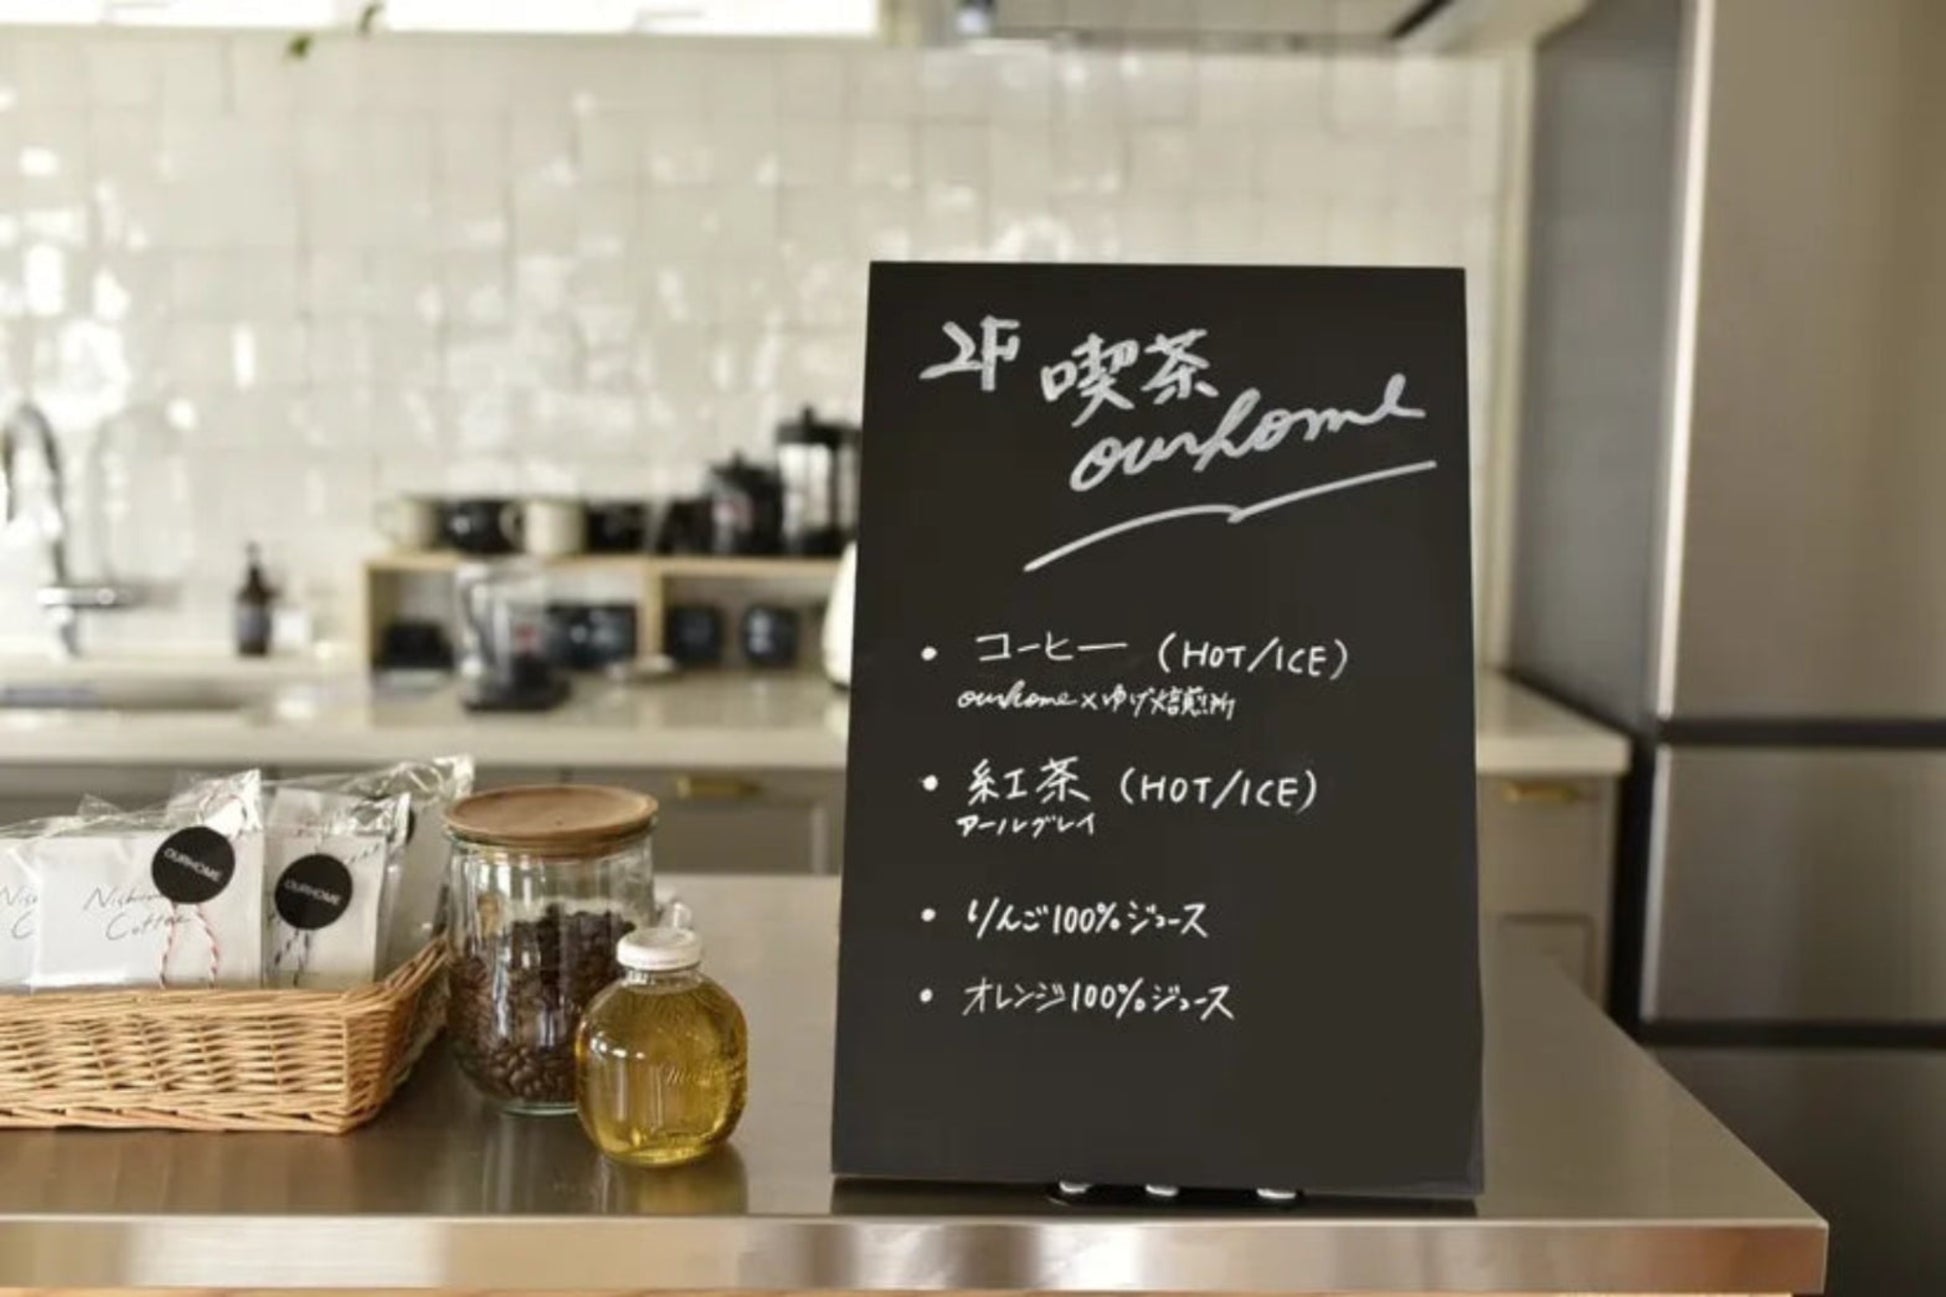 2F 喫茶
ourhome
• コーヒー (HOT/ICE)
ourhome×ゆげ焙煎所
• 紅茶 (HOT/ICE)
アールグレイ
• りんご100%ジュース
• オレンジ100%ジュース
OURHOME
Coffee
OURHOME